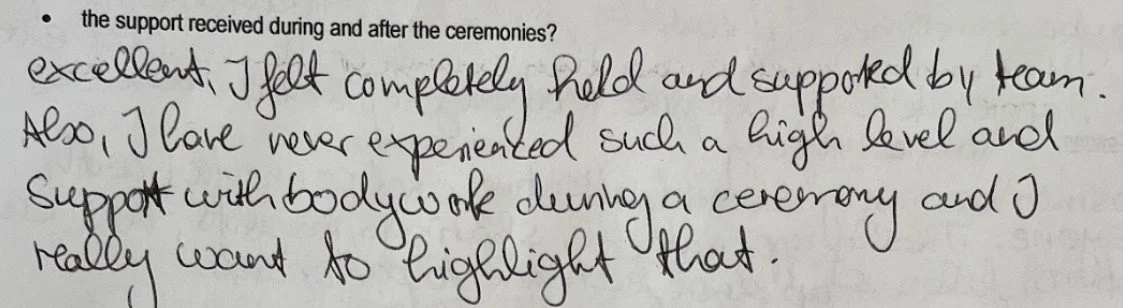 • the support received during and after the ceremonies?
excellent, I felt completely held and supported by team.
Also, I have never experienced such a high level and
support with bodywork during a ceremony and I
really want to highlight that.